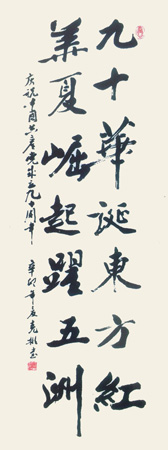 九十華誕東方紅
華夏崛起躍五洲
庆祝中国共产党成立九十周年
辛卯年夏克彬书